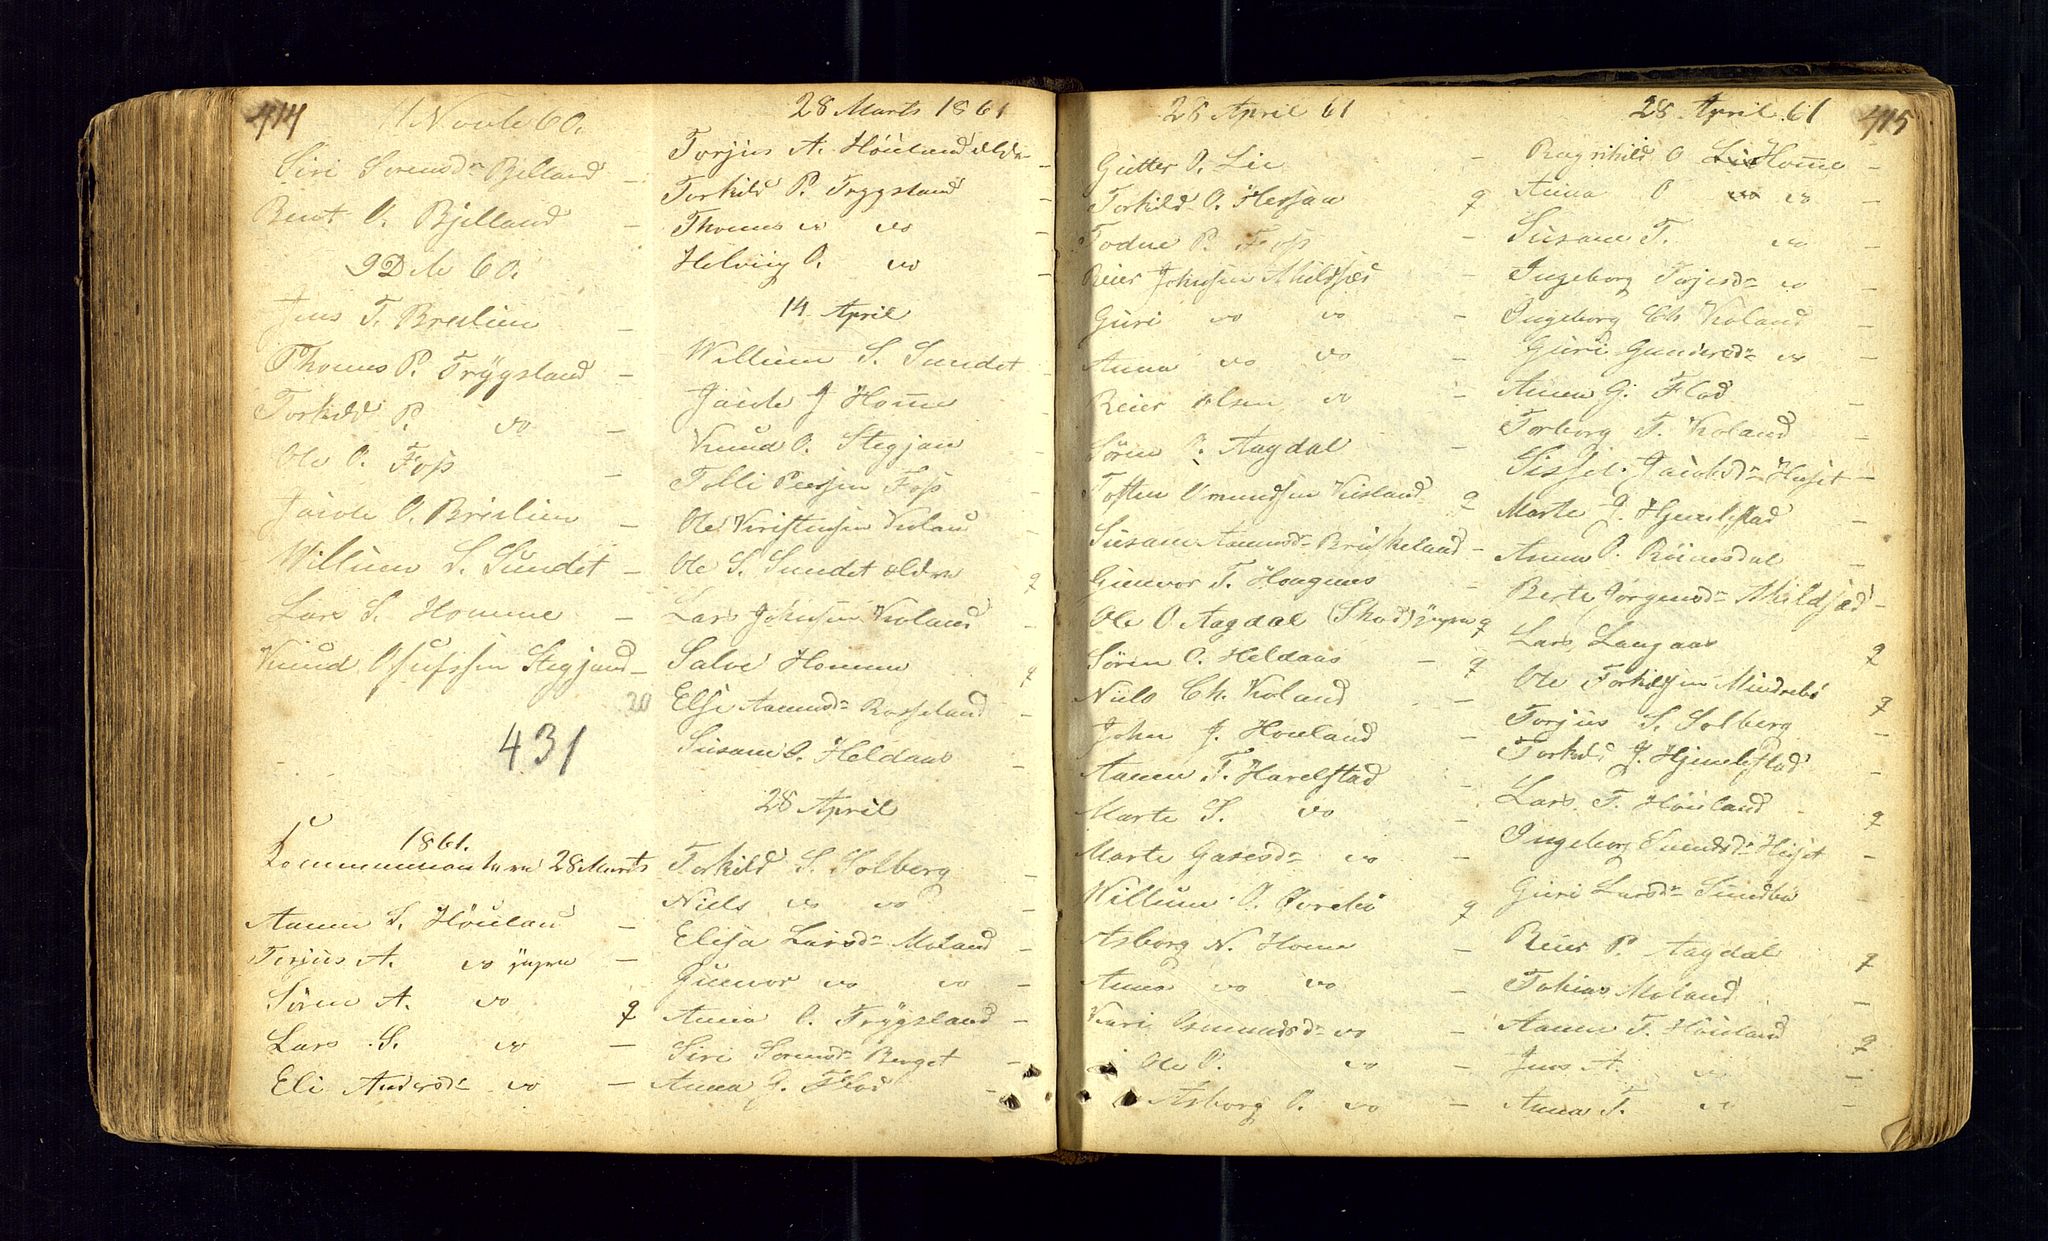 414
11 Novbr 60.
Siri Sorensdr Bjelland -
Berot O. Bjelland -
9 Dcbr 60.
Jens T. Breilien -
Thomas P. Trygsland -
Torkild P. do -
Ole O. Foss -
Jacob O. Breilien -
Willum S. Sundet -
Lars S. Homme -
Knud Osulfsen Stegjand -
20
431
1861.
Kommunionhavn 28 Marts
Aanen S. Höuland -
Torjus A. do yngre -
Sören A. do q
Lars S. do -
Eli Andersdr do -
28 Marts 1861
Torjus A. Höuland ældre -
Torkild P. Trygsland -
Thomas do do -
Helvig O. do -
14 April
Willum S. Sundet
Jacob J Home
Knud O. Stegjan
Tolli Peersen Foss -
Ole Kristensen Koland -
Ole S. Sundet ældre q
Lars Johnsen Koland -
Salve Homme q
Else Aanensdr Rosseland -
Susane O. Heldaas -
28 April
Torkild S. Solberg -
Niels do do -
Elisa Larsdr Moland -
Gunvor do do -
Anna O. Trygsland -
Siri Sorensdr Berget -
Anna G. Flad -
28 April 61
Gutter O. Lie -
Torkild O. Hessaa q
Todne P. Foss -
Reier Johnsen Mildsæd -
Guri do do -
Anna do do -
Reier Olsen do -
Sören O. Aagdal -
Tosten Omundsen Kusland q
Susane Aanensdr Bruskeland -
Gunvor T. Haagenes -
Ole O Aagdal (Skod) yngre q
Sören O. Heldaas - q
Niels Ch. Koland -
John J. Houland -
Aanen T. Harelstad -
Marte S. do -
Marte Gasesdr do -
Willum O. Övrebö q
Asborg N. Home -
Anna do do -
Kari Osmundsdr do -
Ole O. do -
Asborg O. do -
28 April 61
415
Ragnhild O Home -
Anna O do -
Susane T. do -
Ingeborg Torjusdr do -
Ingeborg Ch. Koland -
Guri Gundersdr do -
Anna G. Flad -
Torborg T. Koland -
Sissel Jacobsdr Huset -
Marte J. Hjemlestad -
Anna O. Röinesdal -
Berte Jørgensdr Mildsæd -
Lars Langaas q
Ole Torkildsen Mindrebö q
Torjus S. Solberg -
Torkild J. Hjemlestad -
Lars T. Höuland q
Ingeborg Evindsdr Huset -
Guri Larsdr Sundbø -
Reier P. Aagdal q
Tobias Moland -
Aanen T. Höuland q
Jens A. do -
Anna T. do -